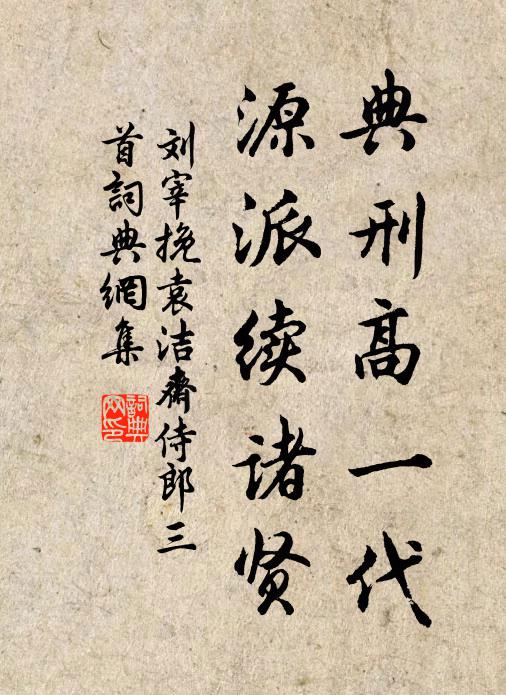 典刑高一代
源派续诸贤
刘宰挽袁洁斋侍郎三
首詞典網集
詞典網印